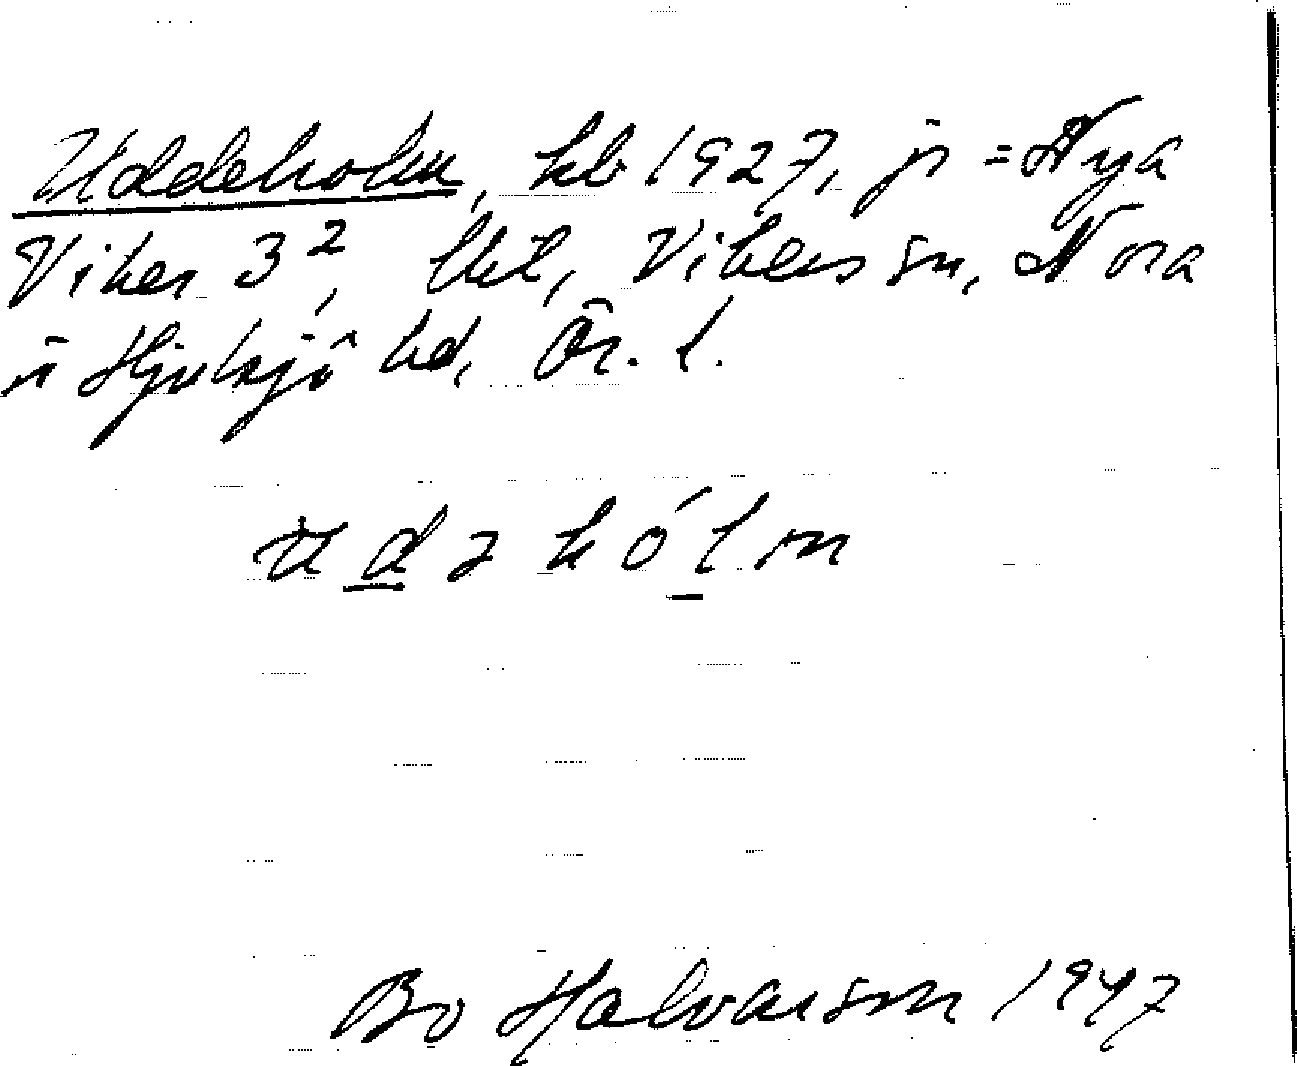 Uddeholm, kb 1927, jr = Nya
Viker 3², lht, Vikers sn, Nora
o Hjulsjö hd, Ör. l.
udəhólm
Bo Halvarson 1947